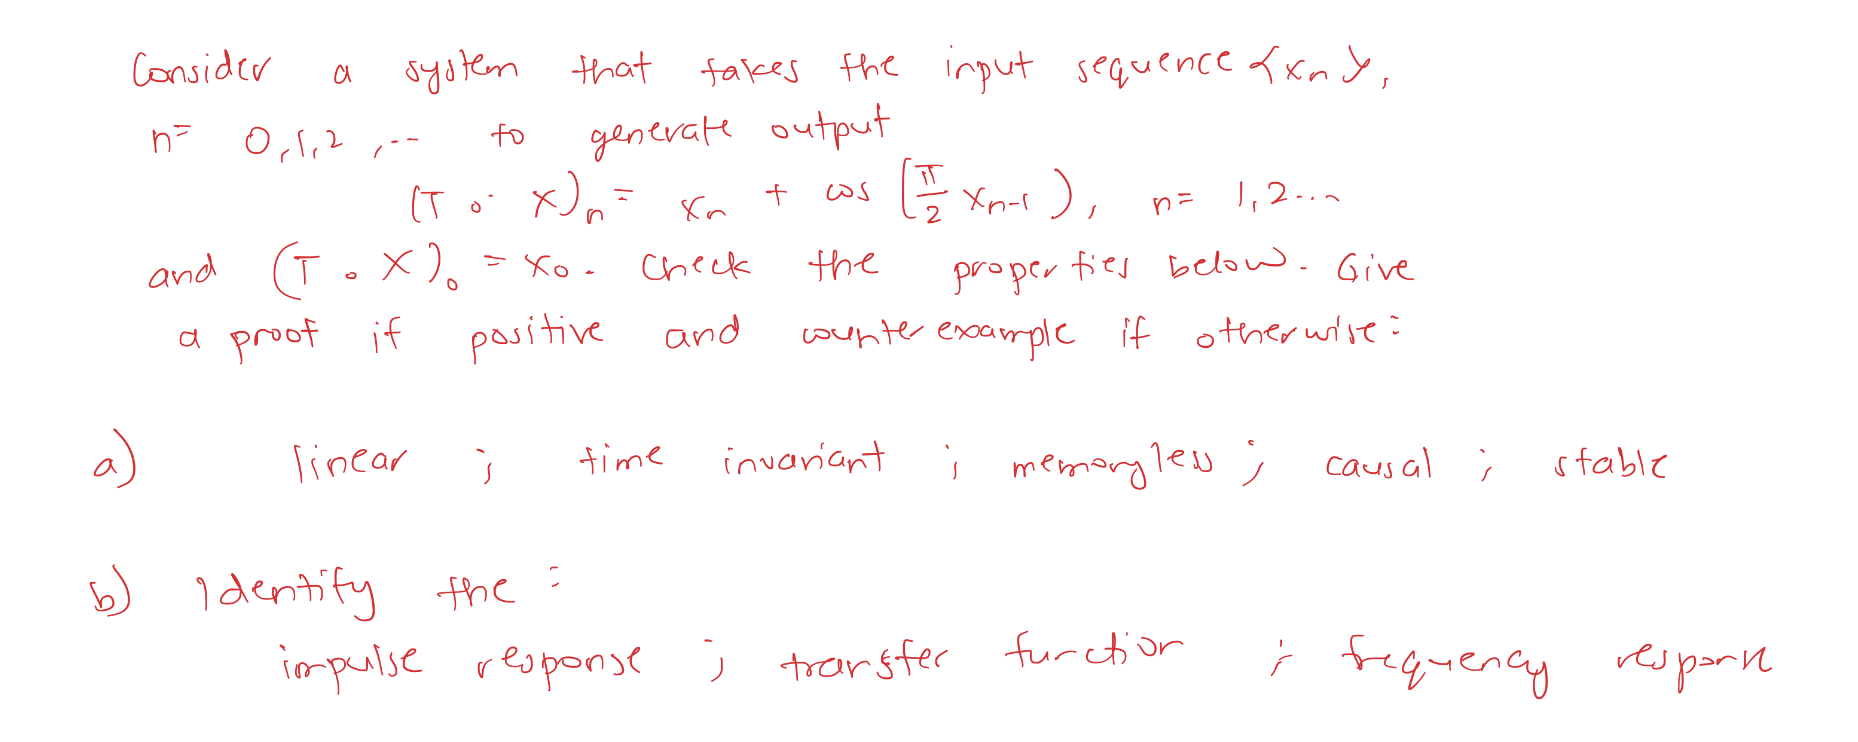 Consider a system that takes the input sequence {xn},
n= 0,1,2,... to generate output
(T∘X)n = xn + cos(π/2 xn-1), n= 1,2...
and (T∘X)0 = x0. Check the properties below. Give
a proof if positive and counter example if otherwise:
a) linear ; time invariant ; memoryless ; causal ; stable
b) Identify the :
impulse response ; transfer function ; frequency response